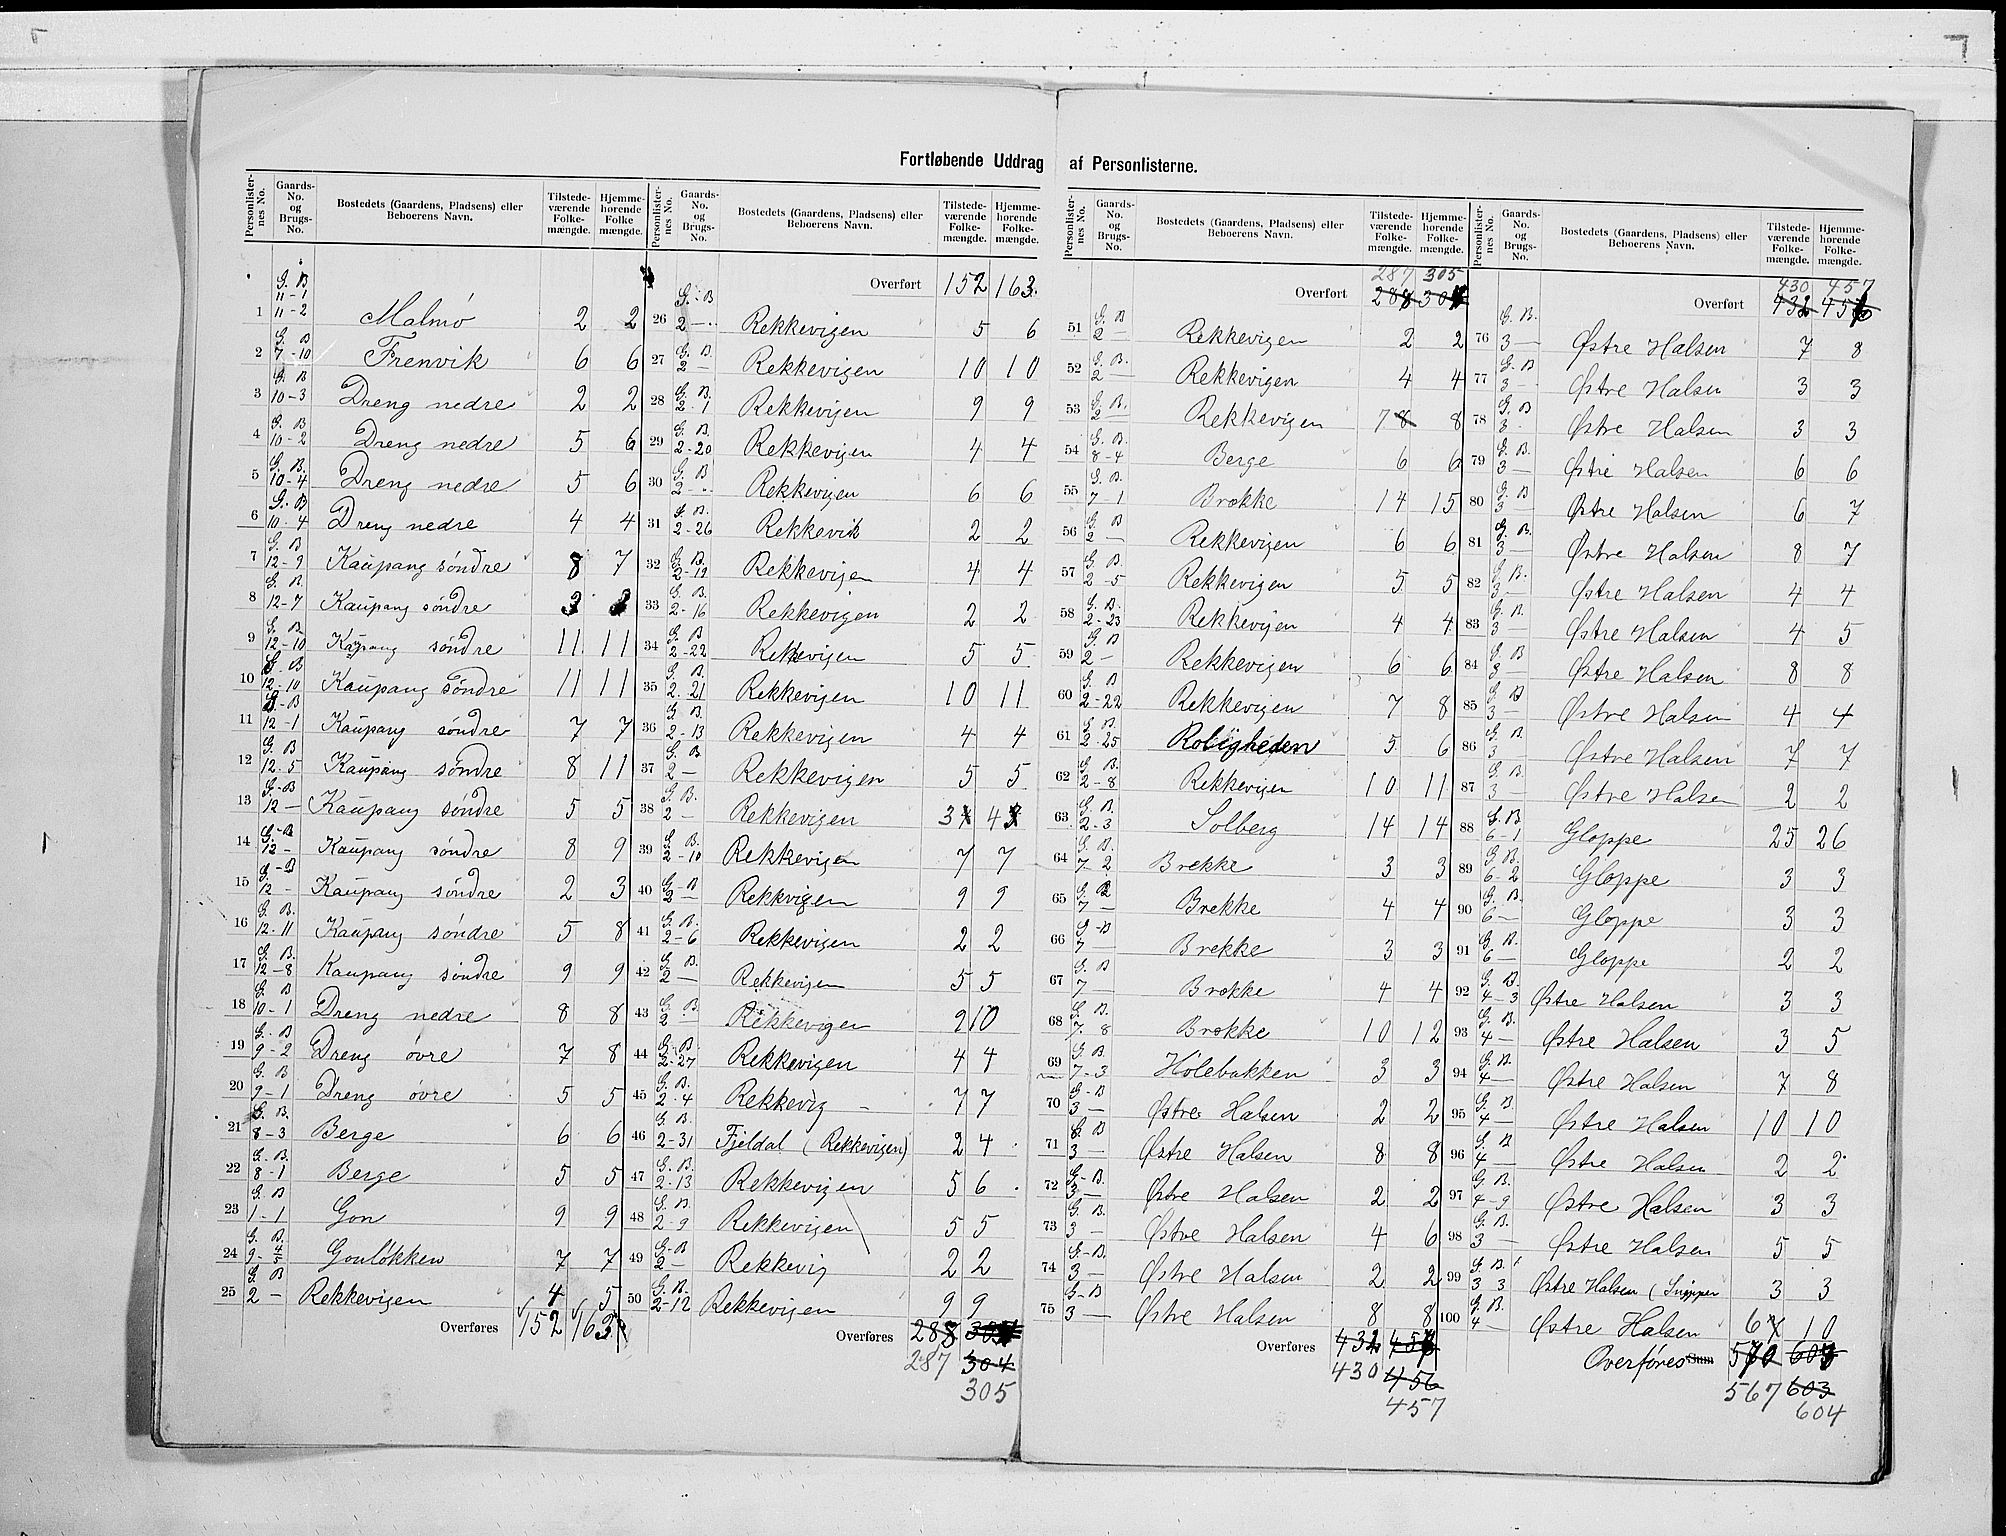 Fortløbende Uddrag af Personlisterne.
Personlisternes No. | Gaards-No. og Brugs-No. | Bostedets (Gaardens, Pladsens) eller Beboerens Navn. | Tilstedeværende Folkemængde. | Hjemmehørende Folkemængde.
1 G. B 11-1 11-2 Malmö 2 2
2 G. B 7-10 Frenvik 6 6
3 G. B 10-3 Dreng nedre 2 2
4 G. B 10-2 Dreng nedre 5 6
5 G. B. 10-4 Dreng nedre 5 6
6 G. B 10-4 Dreng nedre 4 4
7 G. B 12-9 Kaupang söndre 8 7
8 G. B. 12-7 Kaupang söndre
9 G. B. 12-10 Kaupang söndre 11 11
10 G. B 12-10 Kaupang söndre 11 11
11 G. B 12-1 Kaupang söndre 7 7
12 G. B 12-5 Kaupang söndre 8 11
13 G.-B 12 — Kaupang söndre 5 5
14 G.-B 12 - Kaupang söndre 8 9
15 G.-B 12 - Kaupang söndre 2 3
16 G. B. 12-11 Kaupang söndre 5 8
17 G. B 12-8 Kaupang söndre 9 9
18 G. B 10-1 Dreng nedre 8 8
19 G. B 9-2 Dreng övre 7 8
20 G. B 9-1 Dreng övre 5 5
21 G. B. 8-3 Berge 6 6
22 G. B. 8-1 Berge 5 5
23 G. B 1-1 Gon 9 9
24 G. B. 9-4/5 Gonlökken 7 7
25 G. B 2 - Rekkevigen 4 5
Overføres 152 163
Overført 152 163.
26 G.-B 2 — Rekkevigen 5 6
27 G. B. 2 — Rekkevigen 10 10
28 G. B. 2-1 Rekkevigen 9 9
29 G. B. 2-20 Rekkevigen 4 4
30 G. B 2 - Rekkevigen 6 6
31 G. B. 2-26 Rekkevik 2 2
32 G. B. 2-19 Rekkevigen 4 4
33 G. B. 2-16 Rekkevigen 2 2
34 G. B 2-22 Rekkevigen 5 5
35 G. B. 2-21 Rekkevigen 10 11
36 G. B. 2-13 Rekkevigen 4 4
37 G. B 2 — Rekkevigen 5 5
38 G. B. 2 — Rekkevigen 3 4
39 G. B. 2-10 Rekkevigen 7 7
40 G.-B 2 — Rekkvigen 9 9
41 G. B. 2-6 Rekkevigen 2 2
42 G. B 2 — Rekkevigen 5 5
43 G. B. 2 — Rekkevigen 9 10
44 G. B. 2-27 Rekkevigen 4 4
45 G. B. 2-4 Rekkevig 7 7
46 G. B. 2-31 Fjeldal (Rekkevigen) 2 4
47 G. B. 2-13 Rekkevigen 5 6
48 G. B. 2-9 Rekkevigen 5 5
49 G.-B 2 — Rekkevig 2 2
50 G. B. 2-12 Rekkevigen 9 9
Overføres 288 304
287 304
305
287 305
Overført 288 304
51 G. B 2 — Rekkevigen 2 2
52 G. B. 2 — Rekkevigen 4 4
53 G. B. 2 — Rekkevigen 7 8 8
54 G. B. 8-4 Berge 6 6
55 G. B. 7-1 Brekke 14 15
56 G. B 2 — Rekkevigen 6 6
57 G. B. 2-5 Rekkevigen 5 5
58 G. B. 2-23 Rekkevigen 4 4
59 G. B 2 - Rekkevigen 6 6
60 G. B 2-22 Rekkevigen 7 8
61 G. B. 2-25 Roligheden 5 6
62 G. B. 2-8 Rekkevigen 10 11
63 G. B. 2-3 Solberg 14 14
64 G. B. 7-2 Brekke 3 3
65 G. B 7 — Brekke 4 4
66 G -B 7 — Brekke 3 3
67 G. B 7 — Brekke 4 4
68 G. B. 7-8 Brekke 10 12
69 G. B. 7-3 Hölebakken 3 3
70 G-B 3 — Østre Halsen 2 2
71 G. B 3 — Østre Halsen 8 8
72 G.-B. 3 — Østre Halsen 2 2
73 G. B. 3 — Østre Halsen 4 6
74 G.-B. 3 — Østre Halsen 2 2
75 G.-B 3 — Østre Halsen 8 8
Overføres 432 456
430 456
457
430 457
Overført 432 456
76 G. B. 3 — Østre Halsen 7 8
77 G. B 3 - Østre Halsen 3 3
78 G. B 3 Østre Halsen 3 3
79 G. B. 3 — Østre Halsen 6 6
80 G. B 3 — Østre Halsen 6 7
81 G. B. 3 — Østre Halsen 8 7
82 G. B. 3 — Østre Halsen 4 4
83 G. B. 3 Østre Halsen 4 5
84 G. B 3 — Østre Halsen 8 8
85 G. B 3 — Østre Halsen 4 4
86 G. B 3 Østre Halsen 7 7
87 G. B. 3 — Østre Halsen 2 2
88 G. B. 6-1 Gloppe 25 26
89 G. B. 6-2 Gloppe 3 3
90 G. B. 6 — Gloppe 3 3
91 G. B. 6 — Gloppe 2 2
92 G. B. 4-3 Østre Halsen 3 3
93 G. B. 4 — Østre Halsen 3 5
94 G. B. 4 — Østre Halsen 7 8
95 G. B 4 — Østre Halsen 10 10
96 G. B 4 — Østre Halsen 2 2
97 G. B. 4-9 Østre Halsen 3 3
98 G. B. 3 — Østre Halsen 5 5
99 G. B. 3 3 Østre Halsen 3 3
100 G. B. 4 — Østre Halsen 6 7 10
Overføres Sum 570 603
567 603
604